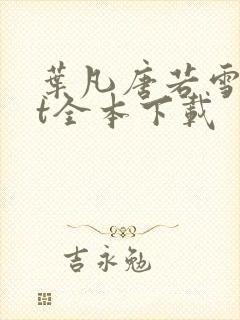 葉凡唐若雪
t全本下載
吉永勉